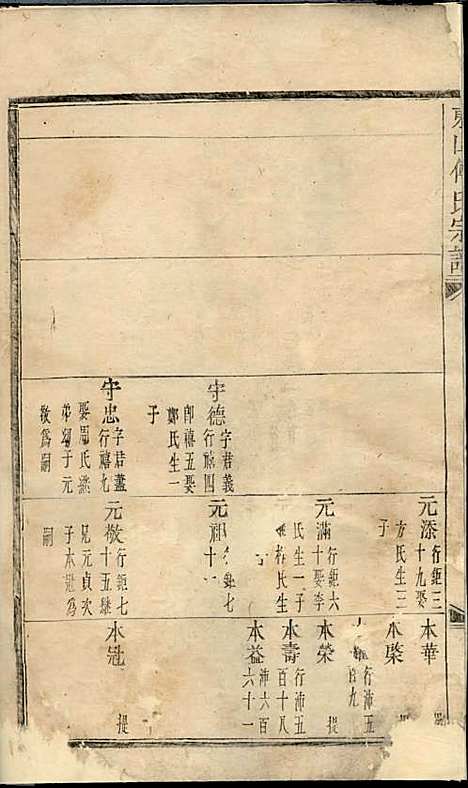 東山傅氏宗譜
守德
字君義
行禧四
郎禧五娶
鄭氏生一
子
守忠
字君蓋
行禧九
娶周氏
弟
子元
敬為嗣
元添
行鉅三
十九娶
方氏生二
子
元滿
行鉅六
十娶李
氏生一子
氏生
元祖
鉅七
十
元敬
行鉅七
十五繼
兄元貞次
子本冠為
嗣
本華
本榮
行沛五
百九
本榮
提
本壽
行沛五
百十八
本益
沛六百
六十一
本冠
提